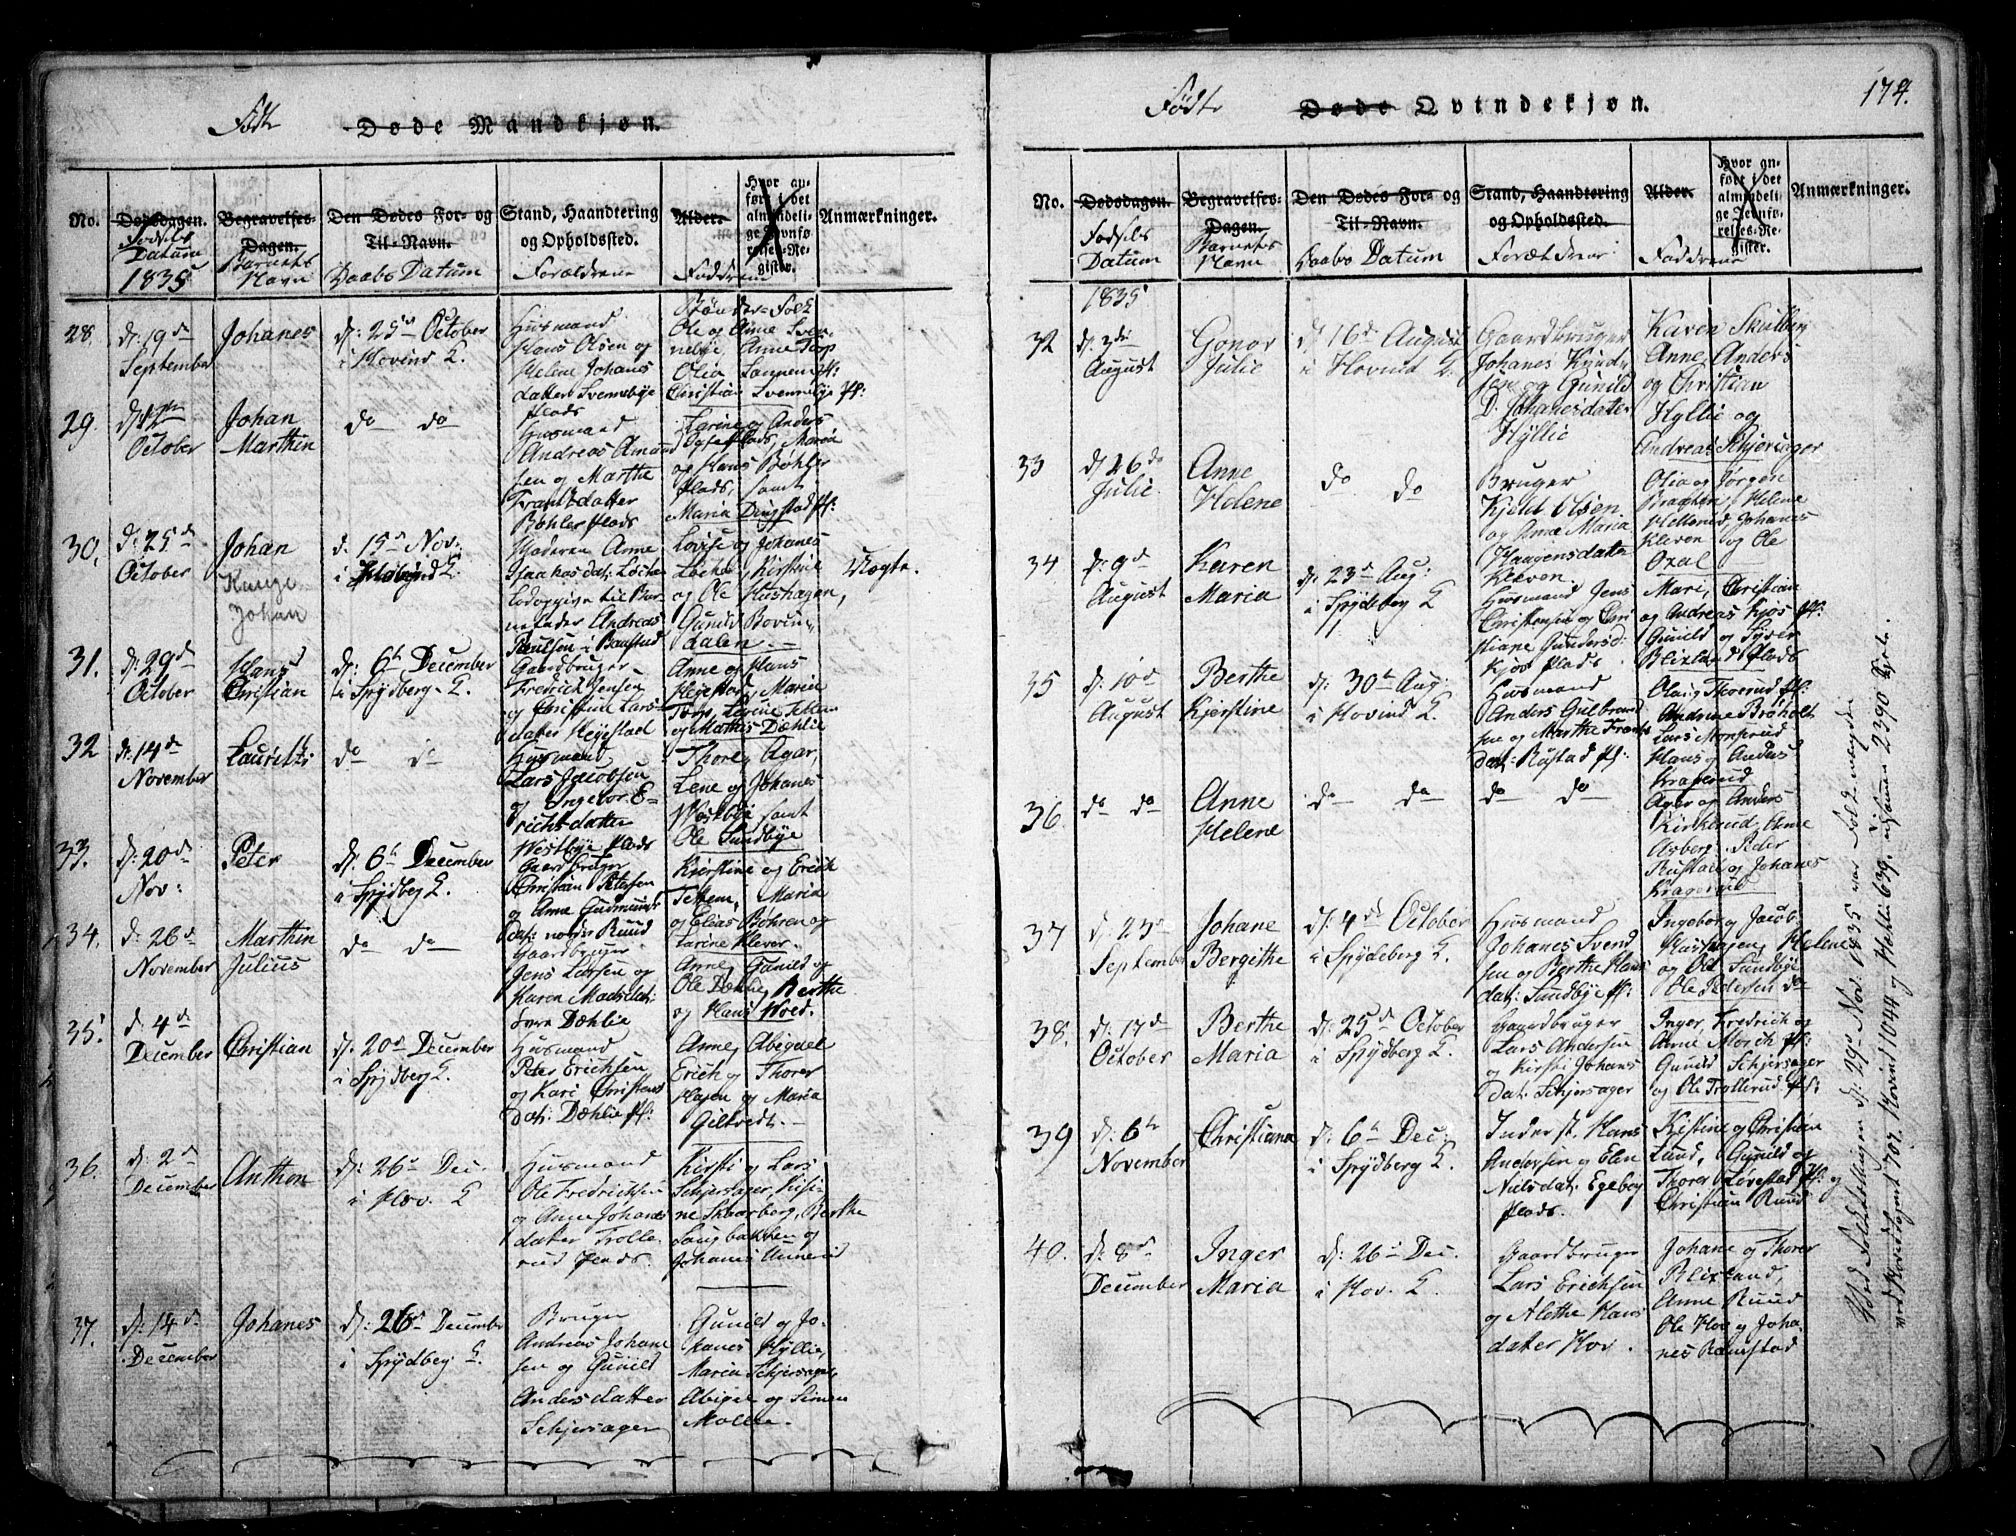 Født Døde Mandkjøn.
No.
Dødsdagen.
Fødsels
Datum
1835
Begravelses-
Dagen.
Barnets
Navn
Den Dødes For- og
Til-Navn.
Daabs Datum
Stand, Haandtering
og Opholdssted.
Forældrene
Alder.
Fadderne
Hvor an-
ført i det
almindeli-
ge Jevnfø-
relses-Re-
gister.
Anmærkninger.
28.
d: 19d
September
Johanes
d: 25d October
i Hovind K.
Huusmand
Hans Olsen og
Helene Johanes
datter Svennebye
Plads
Bønder-Folk
Ole og Anne Sven
nebye, Anne
Olia
Christian Svennebye Pl:
29.
October
Johan
Marthin
do do
Husmand
Andreas Amund
sen og Marthe
Frantzdatter
Bøhler Plads
Larine og Anders
og Hans Bøhler
Plads, samt
Maria Dingstad Pl:
30.
d: 25d
October
Johan
Kauge
Johan
d: 15d Nov:
i Spydeberg K.
Moderen Anne
Isaaksdat: Løche
Udlaggiven til Bar
nefader Andreas
Paulsen i Baastad
Lovise og Johanes
Løche, Kirstine
og Ole Hushagen,
Gunild Bovim
dalen
Uægte.
31.
d: 29d
October
Hans
Christian
d: 6te December
i Spydberg K.
Gaardbruger
Fredrick Jensen
og Christine Lars
datter Heyestad
Anne og Hans
Heyestad, Maria
Torp, Larine
og Mathis Dæhlie
32
d: 14d
November
Lauritz
do do
Husmand
Lars Jacobsen
og Ingebor E-
richsdatter
Westbye Plads
Thore Agar,
Lene og Johanes
Westbye samt
Ole Sundbye
33.
d: 20d
Nov:
Peter
d: 6te December
i Spydbeg K.
Gaardbruger
Christian Petersen
og Anne Gudmunds
dat: nordr Ruud
Kierstine og Erich
Tetten, Maria
og Elias Bohren og
Larine Klever.
34.
d: 26d
November
Marthin
Julius
do do
Gaardbruger
Jens Larsen og
Karen Madsdat:
søre Dæhlie
Anne, Gunild og
Ole Dæhlie, Berthe
og Hans Hoed.
35.
d: 4d
December
Christian
d: 20d December
i Spydberg K.
Husmand
Peter Erichsen
og Kari Christens
dat: Dæhlie Pl:
Anne, Abiguel
Erich og Thorer
Hagen og Maria
Giltvedt.
36.
d: 2d
December
Anthon
d: 26d Dec.
i Hov. K
Husmand
Ole Fredrichsen
og Anne Johanes
datter Trolle-
rud Plads.
Kirsti og Lars
Schjersager, Kisti-
ne Skarberg, Berthe
Langbakken og
Johanes Unnerud
37.
d: 14d
December
Johanes
d: 26d December
i Spydberg K.
Bruger
Andreas Johane
sen og Gunild
Andersdatter
Schjersager
Gunild og Jo-
hanes Hyllie,
Maria Schjersager,
Abigel og Simen
Molle.
Født Døde Qvindekjøn.
174.
No.
Dødsdagen.
Fødsels
Datum
Begravelses-
Dagen.
Barnets
Navn
Den Dødes For- og
Til-Navn.
Daabs Datum
Stand, Haandtering
og Opholdssted.
Forældrene
Alder.
Fadderne
Hvor an-
ført i det
almindeli-
ge Jevnfø-
relses-Re-
gister.
Anmærkninger.
1835
32
d: 3die
August
Gonor
Julie
d 16d August
i Hovind K.
Gaardbruger
Johanes Knud-
sen og Gunild
D. Johanesdatter
Hyllie
Karen Skulberg
Anne, Anders
og Christian
Hyllie og
Andreas Schjersager
33
d: 26de
Julie.
Anne
Helene
do do
Bruger
Kield Olsen
og Anne Maria
Haagensdatter
Kleven.
Olia og Jørgen
Bragten, Helene
Hellerud, Johanes
Kleven og Ole
Oxal
34
d: 9d
August
Karen
Maria
d: 23d Aug:
i Spydeberg K
Husmand Jens
Christensen og Chri
stiane Gundersd:
Kjos Plads.
Mari, Christian
og Andreas Kjos Pl:
Gunild og Syver
Blixland Plads
35
d: 10d
August
Berthe
Kjerstine
d: 30te Aug:
i Hovind K.
Husmand
Anders Gulbrand
sen og Marthe Frants
dat: Rustad Pl:
Olaug Thorerud Pl:
Andrine Brøholt
Lars Monserud
Hans og Anders
Kragerud
36.
do do
Anne
Helene
do do
do do
Ager og Anders
Kirkerud, Anne
Asberg, Peder
Rustad og Johanes
Kragerud
37
d: 23d
September
Johane
Bergithe
d: 4de October
i Spydeberg K.
Husmand
Johanes Svend
sen og Berthe Hans
dat: Sundbye Pl:
Ingeborg, Jacob
Hashagen, Helene
og Ole Sundbye
Ole Pedersen do
38.
d: 17d
October
Berthe
Maria
d: 25d October
i Spydberg K.
Gaardbruger
Lars Andersen
og Kirsti Johans
dat: Schjersager
Inger, Fredrich og
Anne Morch Pl:
Gunild Schjersager
og Ole Trollerud Pl:
39
d: 6te
November
Christiana
d: 6te Dec:
i Spydberg K.
Inderst, Hans
Andersen og Elen
Nielsdat: Egeberg
Plads.
Kistine og Christian
Lund, Gunild og
Thorer Løvestad Pl: og
Christian Ruud
40.
d: 8d
December
Inger
Maria
d: 26d Dec.
i Hov. K.
Gaardbruger
Lars Erichsen
og Alethe Hans
datter Hov.
Johane og Thorer
Blixland,
Anne Ruud
Ole Hov og Joha-
nes Ramstad
Ved Folketellingen d: 29d Nov: 1835 var Folkemængden
ved Hovedsognet 707. Hovind 1044 og Hekli 639. tilsamen 2390